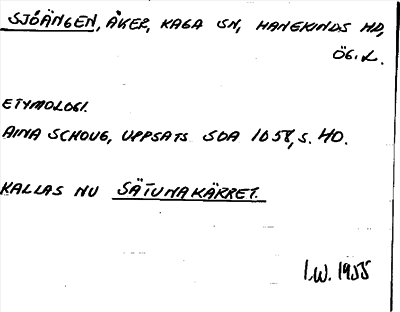 SJÖÄNGEN, ÅKER, KAGA SN, HANEKINDS HD,
ÖG.L.
ETYMOLOGI.
AINA SCHOUG, UPPSATS SDA 1058, S. 40.
KALLAS NU SÄTUNAKÄRRET.
I.W. 1955